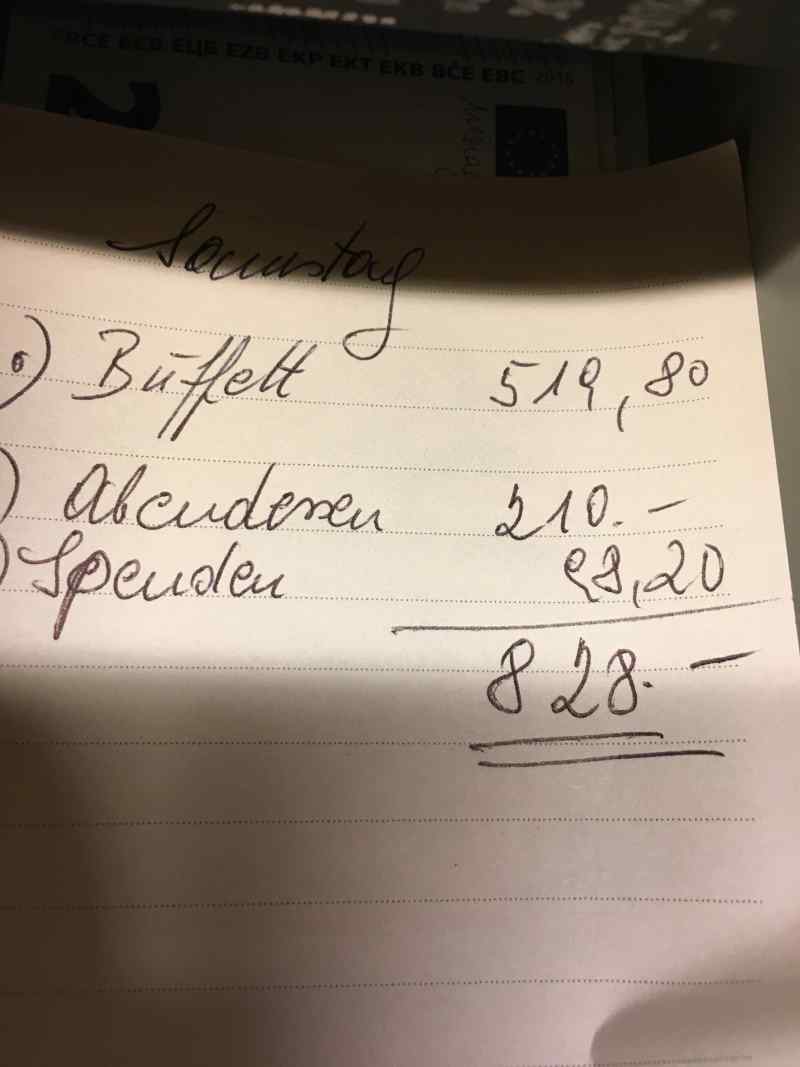 BCE ECB ЕЦБ EZB EKP EKT EKB BĊE EBC 2015
2
Samstag
•) Büffett 519,80
) Abendessen 210.-
) Spenden 98,20
828.-